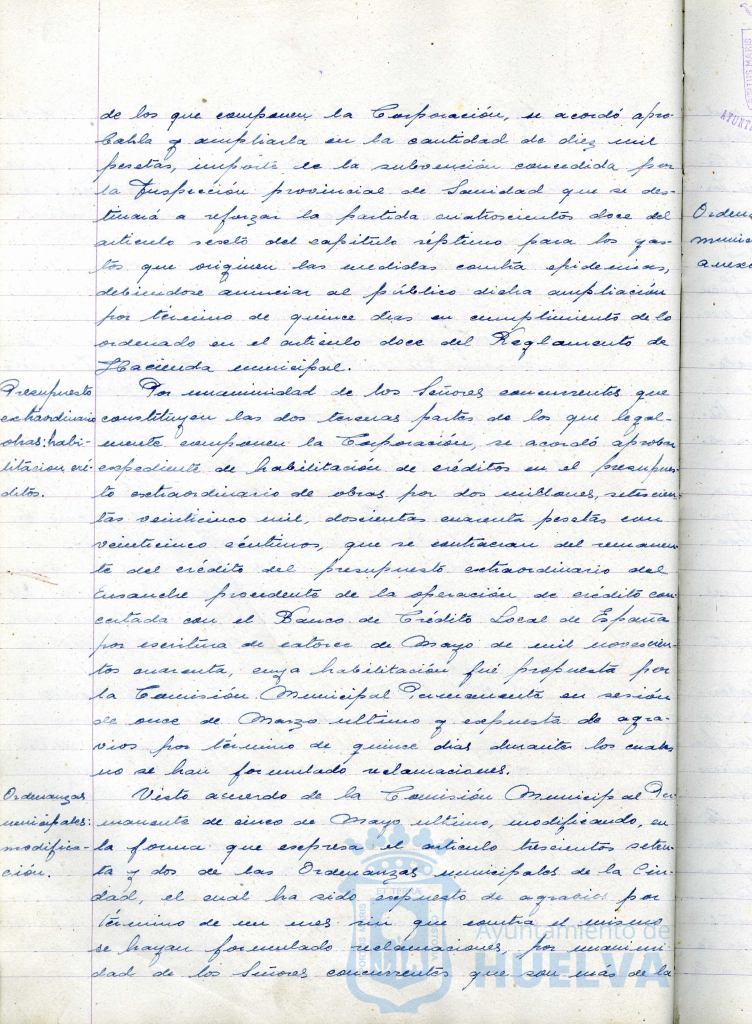 de los que componen la Corporación, se acordó apro-
barla y ampliarla en la cantidad de diez mil
pesetas, importe de la subvención concedida por
la Inspección provincial de Sanidad que se des-
tinará a reforzar la partida cuatroscientos doce del
artículo sexto del capítulo séptimo para los gas-
tos que originen las medidas contra epidemias,
debiendose anunciar al público dicha ampliación
por termino de quince dias en cumplimiento de lo
ordenado en el artículo doce del Reglamento de
Hacienda municipal.
Presupuesto
extraordinario
obras: habi-
litacion cré-
ditos.
Por unanimidad de los Señores concurrentes que
constituyen las dos terceras partes de los que legal-
mente componen la Corporación, se acordó aprobar
expediente de habilitación de créditos en el presupues-
to extraordinario de obras por dos millones, setecien-
tas veinticinco mil, doscientas cuarenta pesetas con
veinticinco céntimos, que se contraen del remanen-
te del crédito del presupuesto extraordinario del
Ensanche procedente de la operación de crédito con-
certada con el Banco de Crédito Local de España
por escritura de catorce de Mayo de mil novecien-
tos cuarenta, cuya habilitación fué propuesta por
la Comisión Municipal Permanente en sesión
de once de Marzo ultimo y expuesta de agra-
vios por término de quince dias durante los cuales
no se han formulado reclamaciones.
Ordenanzas
municipales:
modifica-
ción.
Visto acuerdo de la Comisión Municipal Per-
manente de cinco de Mayo ultimo, modificando, en
la forma que expresa el artículo trescientos seten-
ta y dos de las Ordenanzas municipales de la Ciu-
dad, el cual ha sido expuesto de agravios por
término de un mes sin que contra el mismo
se hayan formulado reclamaciones, por unanimi-
dad de los Señores concurrentes que son más de la
Ayuntamiento de
HUELVA